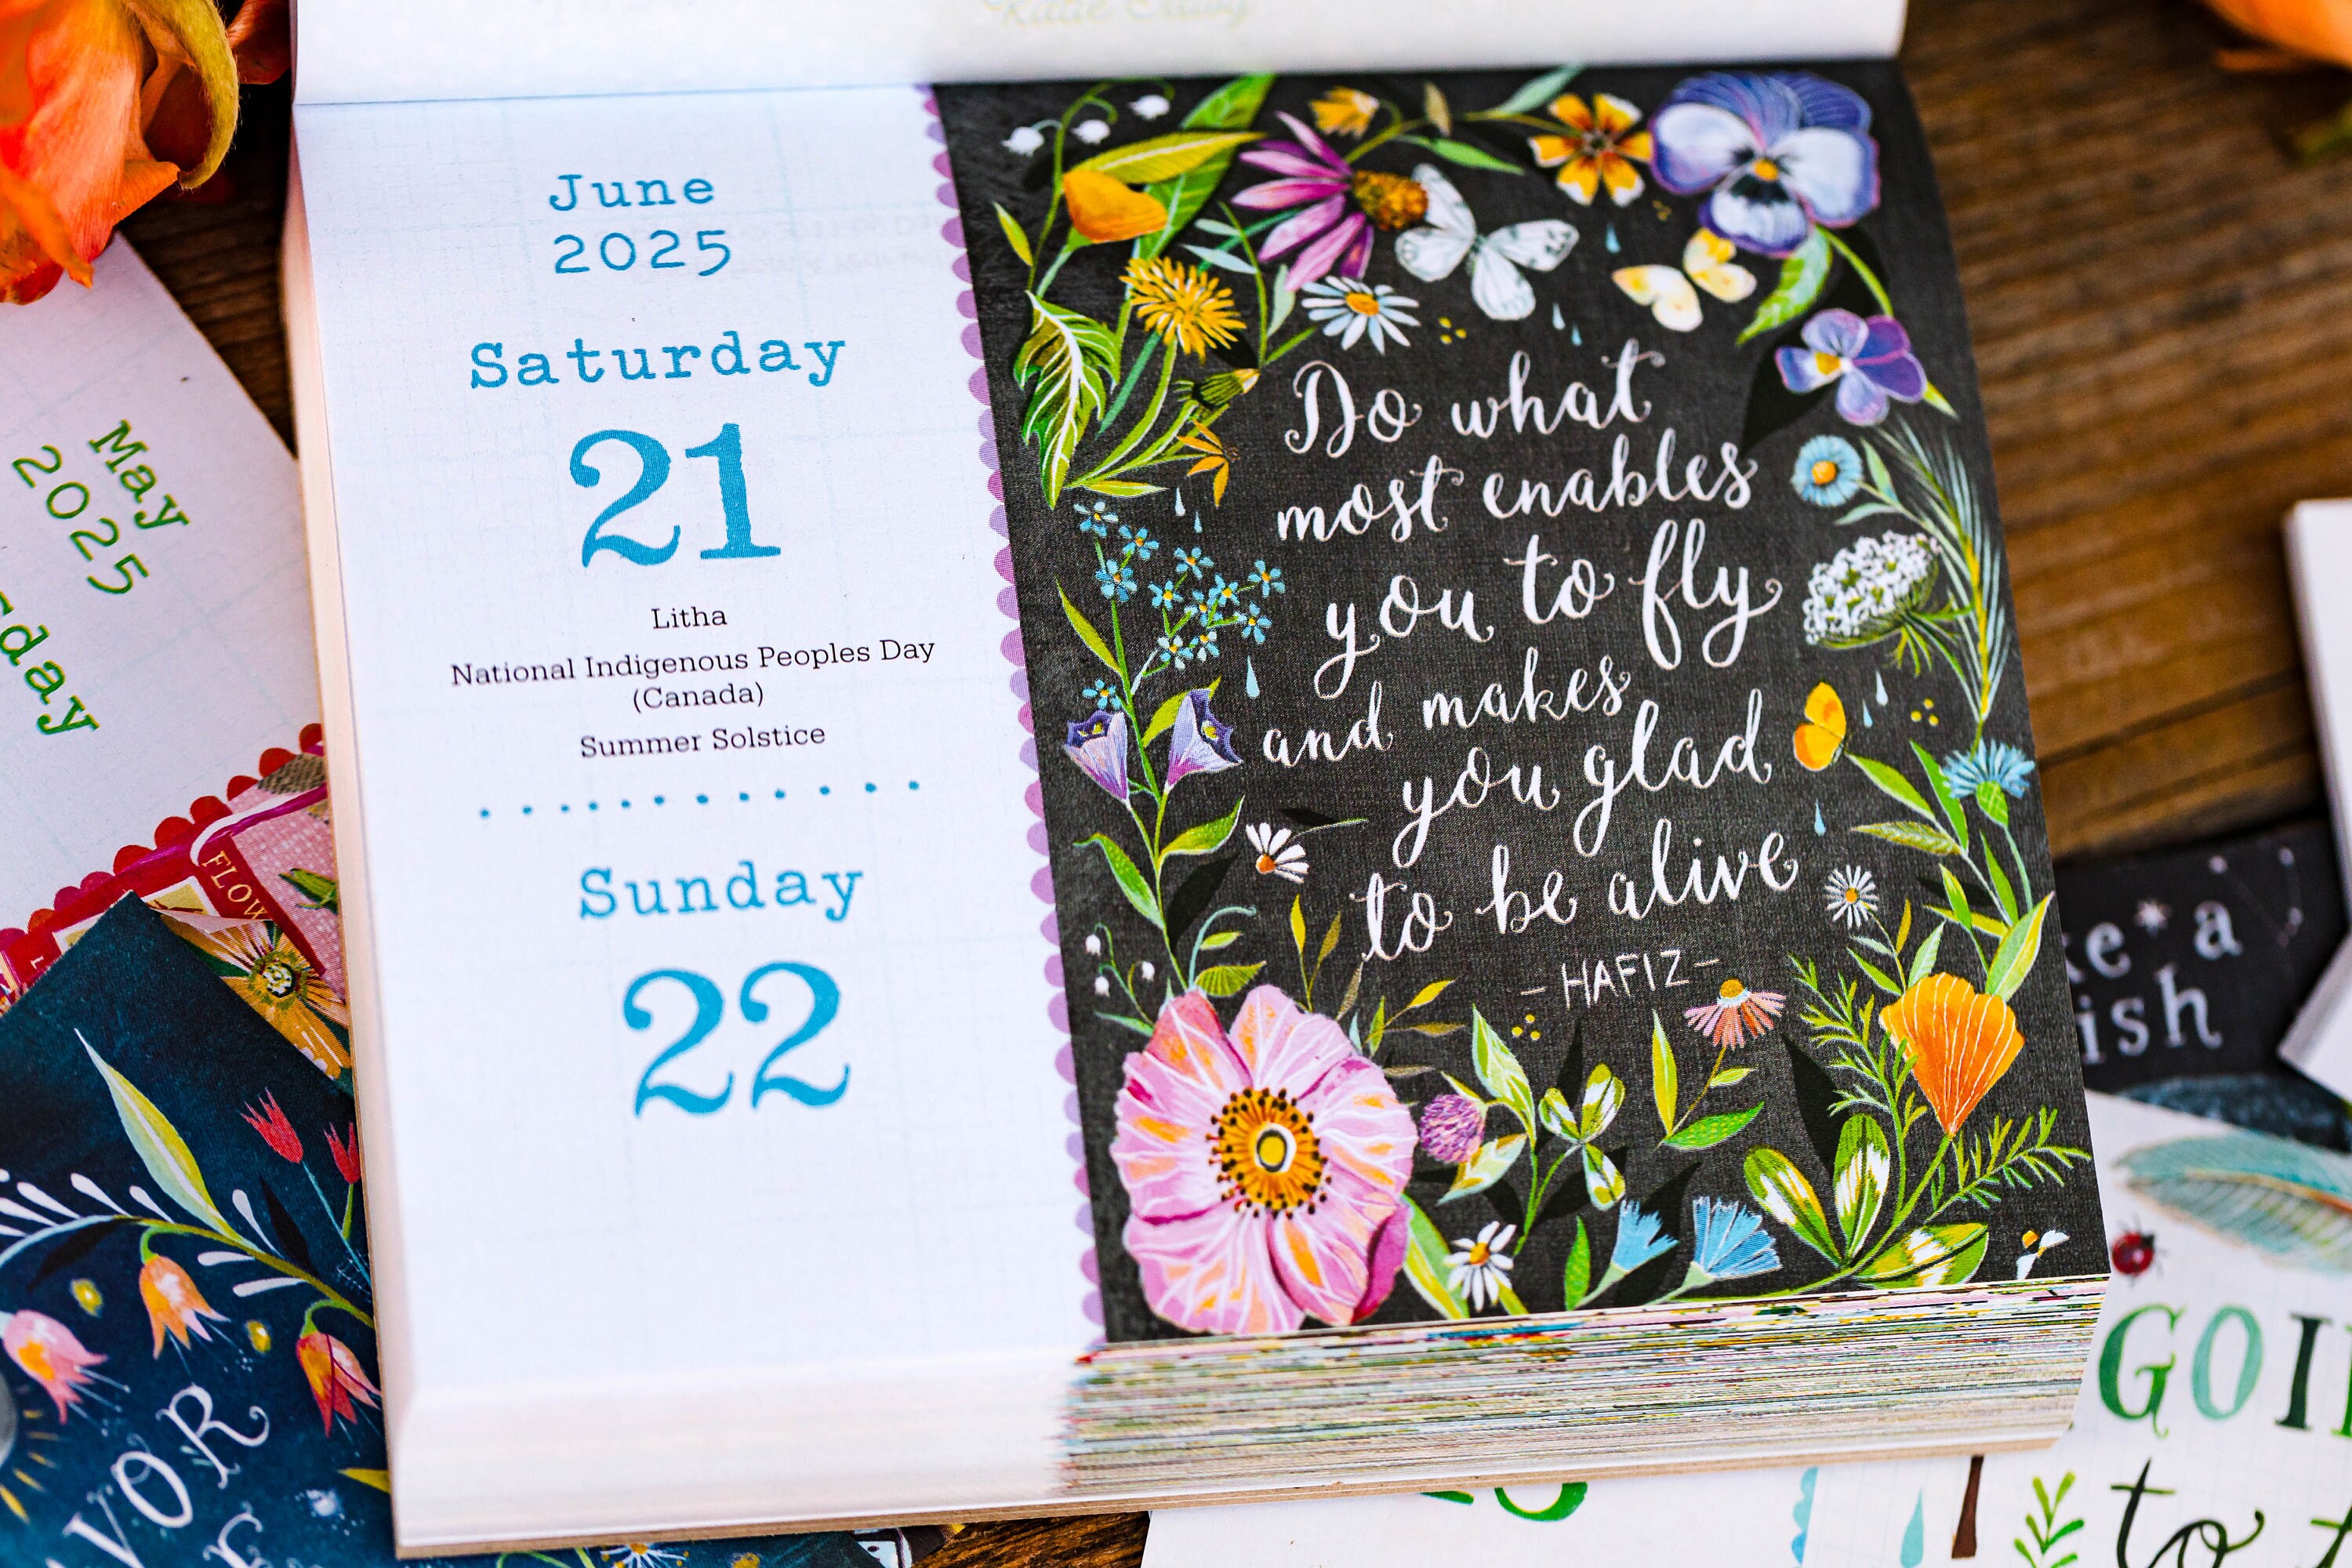 June
2025
Saturday
21
Litha
National Indigenous Peoples Day
(Canada)
Summer Solstice
Sunday
22
Do what
most enables
you to fly
and makes
you glad
to be alive
-HAFIZ-
May
2025
FLOW
a
to